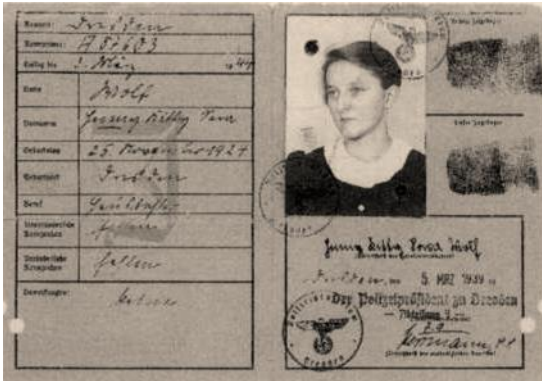 Dresden
A 57603
Gültig bis 3. März 1944
Name Wolf
Jenny Kitty Sara
Geburtstag 25. November 1924
Geburtsort Dresden
Beruf
Unveränderliche Kennzeichen fehlen
Veränderliche Kennzeichen fehlen
Bemerkungen: keine
Rechter Zeigefinger
Linker Zeigefinger
Jenny Kitty Sara Wolf
Dresden, den 5. MRZ 1939
Der Polizeipräsident zu Dresden
Polizeipräsidium
Dresden